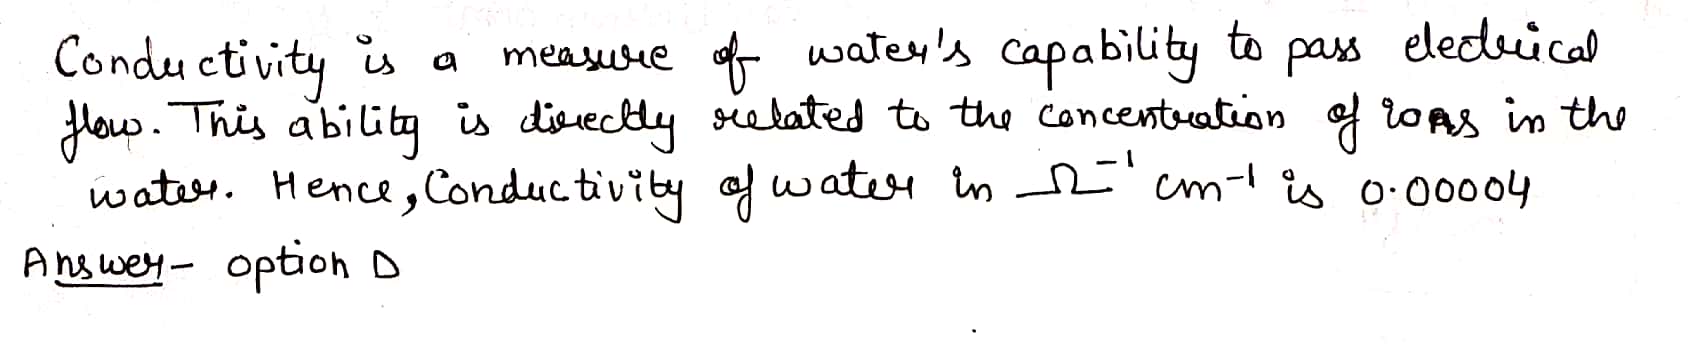 Conductivity is a measure of water's capability to pass electrical
flow. This ability is directly related to the concentration of ions in the
water. Hence, Conductivity of water in Ω⁻¹ cm⁻¹ is 0.00004
Answer - option D